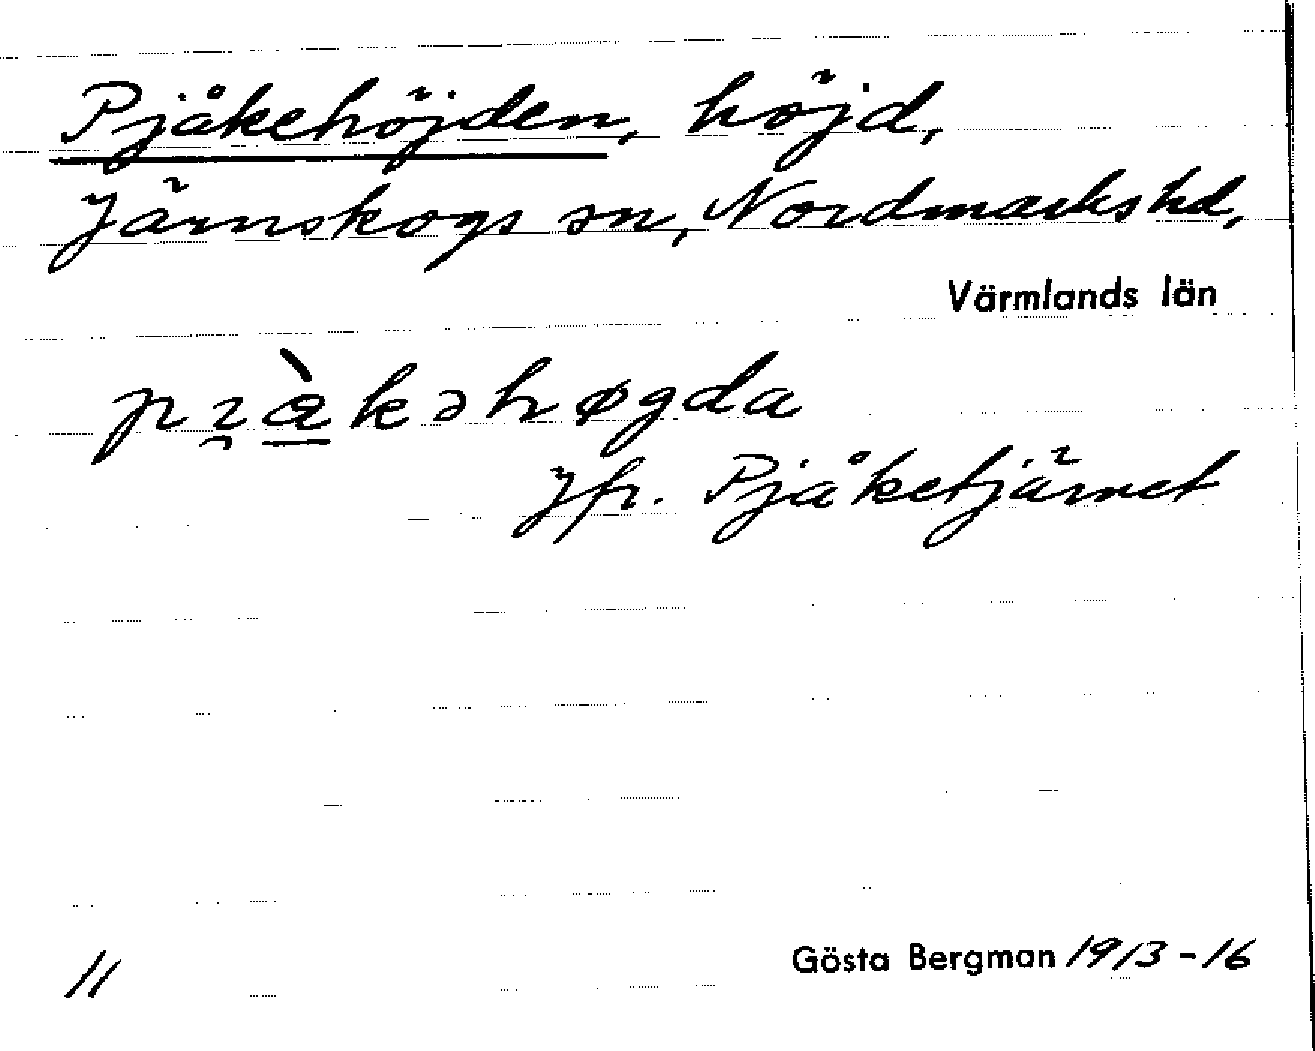 Pjåkehöjden, höjd,
Järnskogs sn, Nordmarks hd,
Värmlands län
Jfr. Pjåketjärnet
11
Gösta Bergman 1913-16